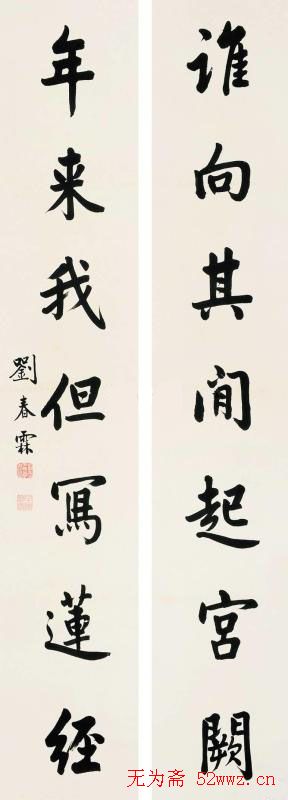 谁向其间起宫阙
年来我但写莲经
劉春霖
无为斋 52wwz.cn